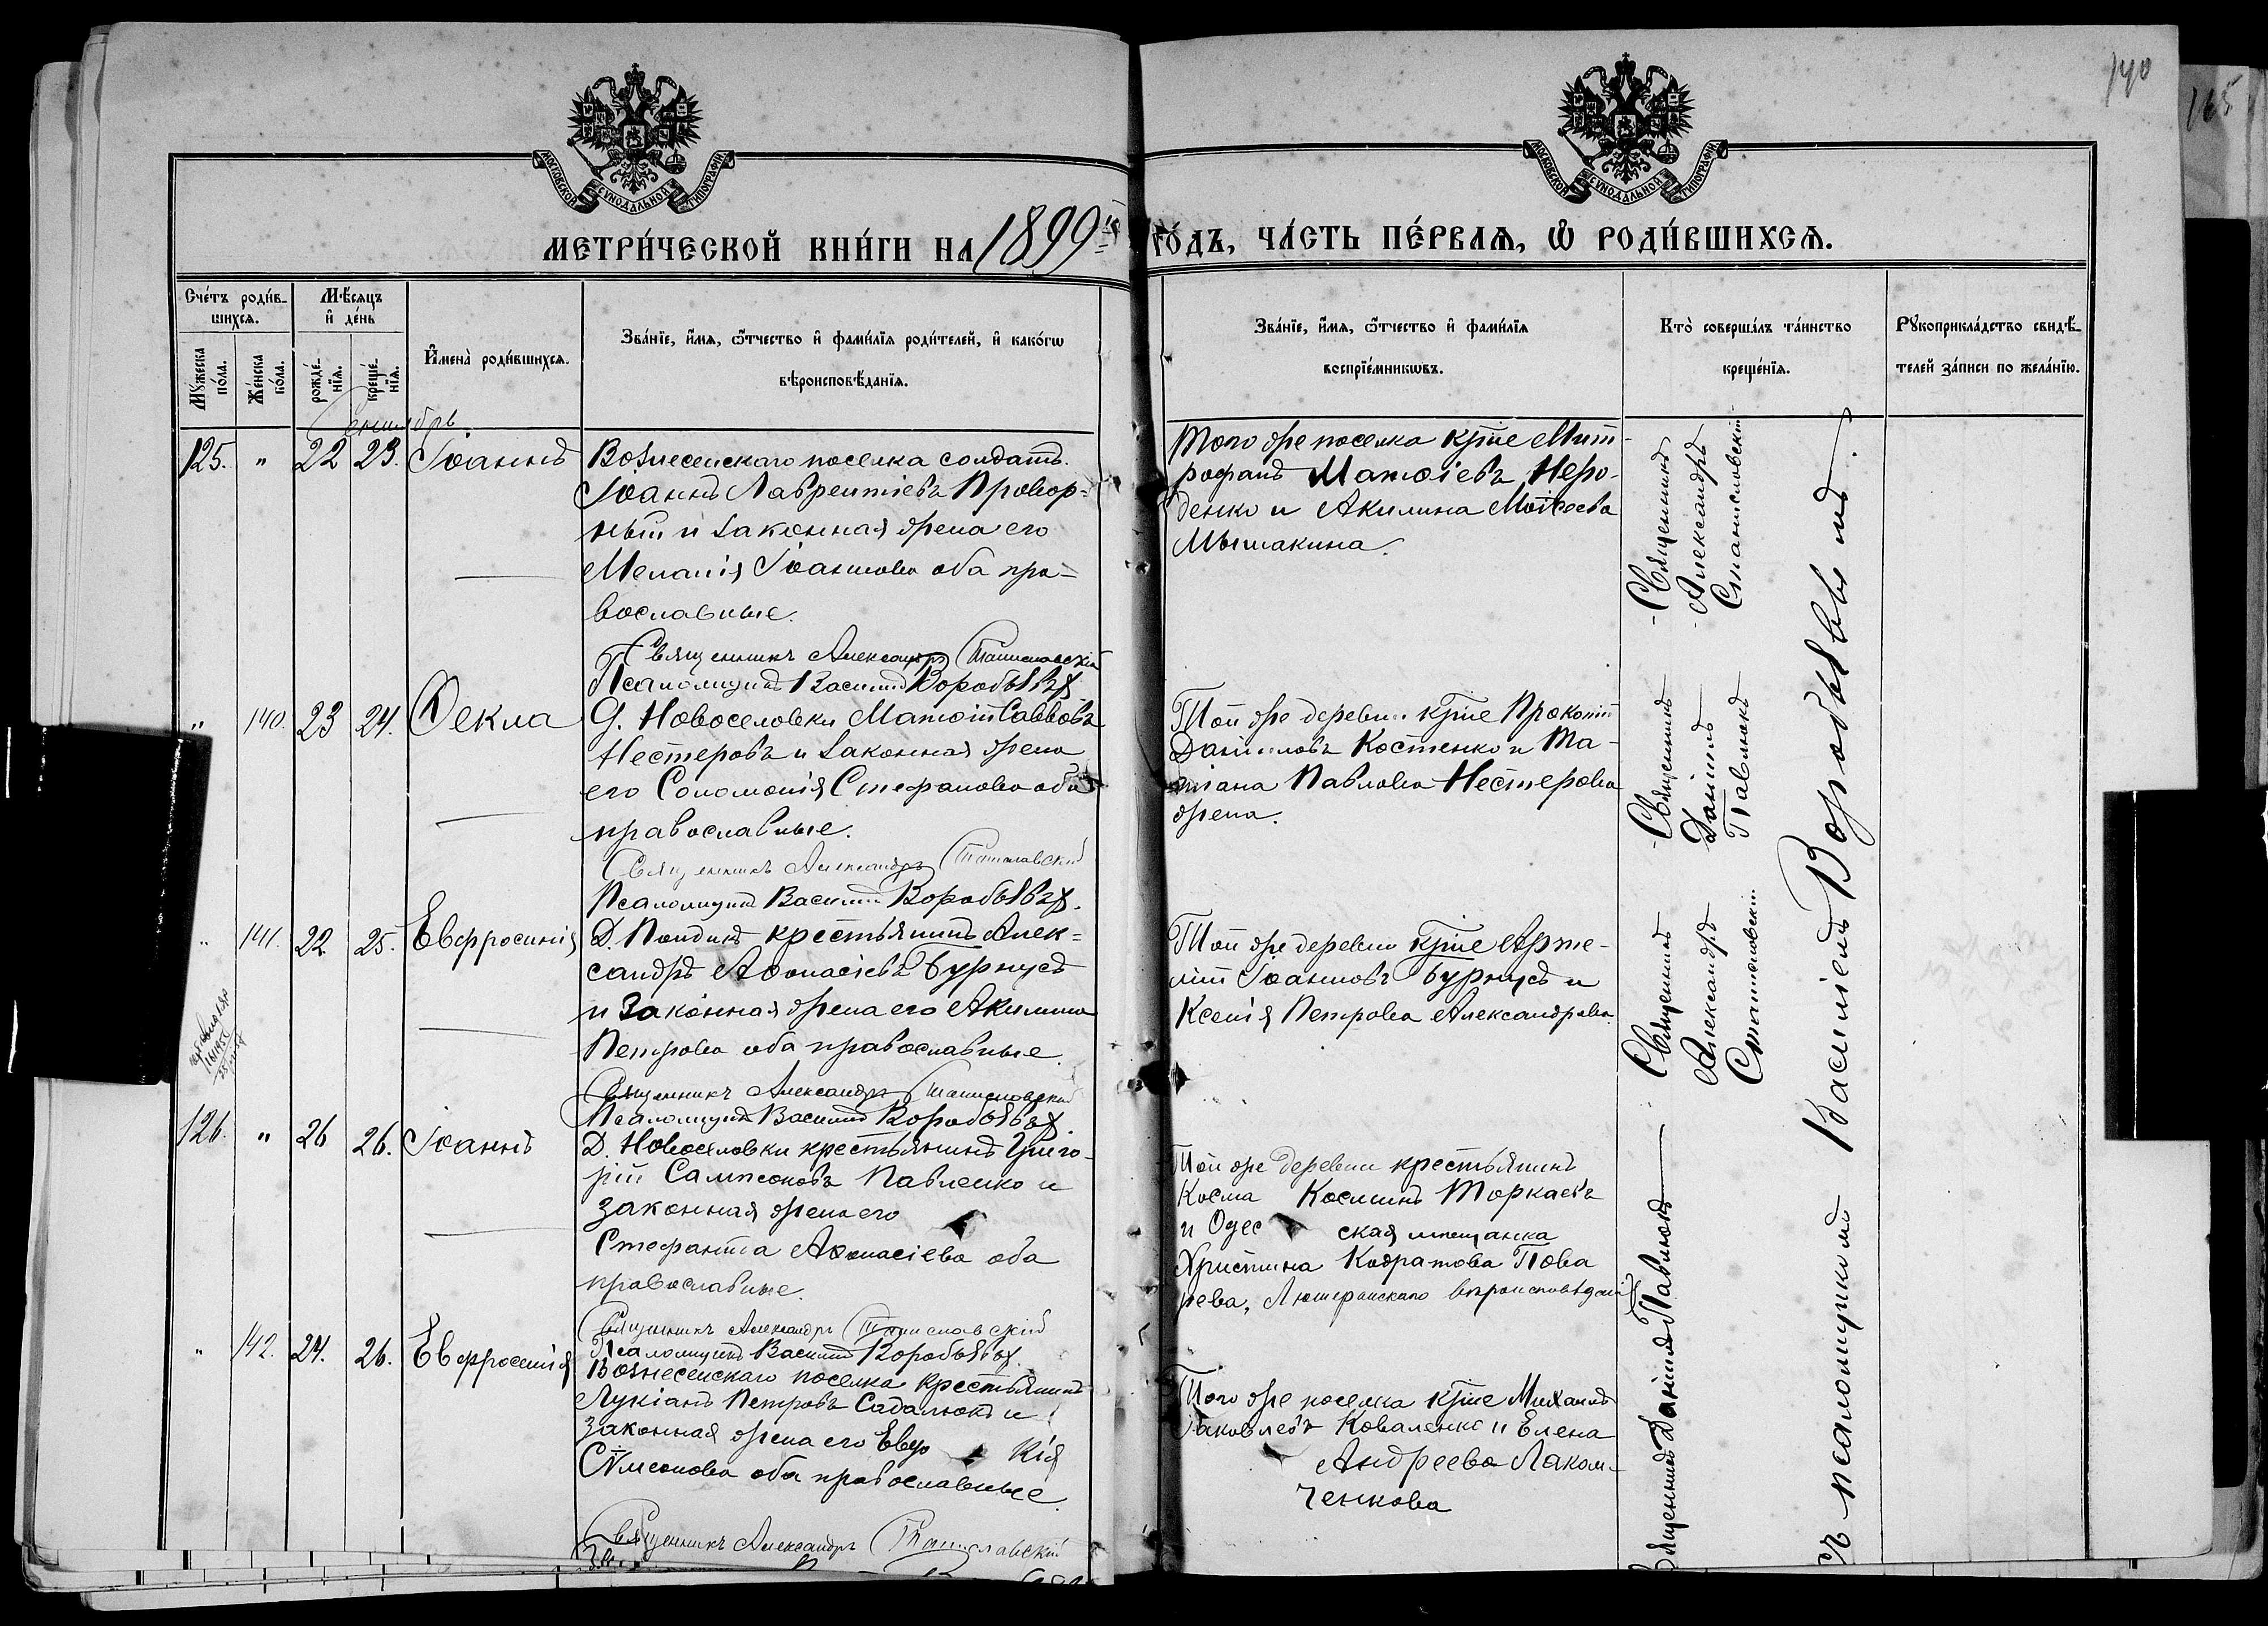 140
165
МОСКОВСКОЙ СѴНОДАЛЬНОЙ ТИПОГРАФІИ
МОСКОВСКОЙ СѴНОДАЛЬНОЙ ТИПОГРАФІИ
МЕТРИ́ЧЕСКОЙ КНИ́ГИ НА 1899й ГО́ДЪ, ЧА́СТЬ ПЕ́РВАѦ, Ѽ РОДИ́ВШИХСѦ.
Сче́тъ роди́в-
шихсѧ.
Мꙋ́жеска
по́ла.
Же́нска
по́ла.
Мѣ́сѧцъ
и҆ де́нь
рожде́-
нїѧ.
креще́-
нїѧ.
И҆мена̀ роди́вшихсѧ.
Зва́нїе, и҆́мѧ, ѻ҆́тчество и҆ фами́лїѧ роди́телей, и҆ како́гѡ
вѣроисповѣ́данїѧ.
Зва́нїе, и҆́мѧ, ѻ҆́тчество и҆ фами́лїѧ
воспрїе́мникѡвъ.
Кто̀ соверша́лъ та́инство
креще́нїѧ.
Рꙋкоприкла́дство свидѣ́-
телей за́писи по жела́нїю.
Сентябрь
125. " 22 23. Іоаннъ
Вознесенскаго поселка солдатъ
Іоаннъ Лаврентіевъ Провор-
ный и законная жена его
Меланія Іоаннова оба пра-
вославные.
Священникъ Александръ Станиславскій
Псаломщикъ Василій Воробьевъ
Того же поселка кр̃не Мит-
рофанъ Матѳіевъ Неро-
денко и Акилина Моисеева
Мышакина.
Священникъ
Александръ
Станиславскій
" 140. 23 24. Ѳекла
Д. Новоселовки Матѳій Саввовъ
Нестеровъ и законная жена
его Соломонія Стефанова оба
православные.
Священникъ Александръ Станиславскій
Псаломщикъ Василій Воробьевъ
Той же деревни кр̃не Прокопій
Даніиловъ Костенко и Та-
тіана Павлова Нестерова
жена.
Священникъ
Даніилъ
Павлюкъ
" 141. 22 25. Евфросинія
Д. Пондикъ крестьянинъ Алек-
сандръ Аѳанасіевъ Бурнусъ
и законная жена его Акилина
Петрова оба православные.
Священникъ Александръ Станиславскій
Псаломщикъ Василій Воробьевъ
Той же деревни кр̃не Арте-
мій Іоанновъ Бурнусъ и
Ксенія Петрова Александрова.
Священникъ
Александръ
Станиславскій
126. " 26 26. Іоаннъ
Д. Новоселовки крестьянинъ Григо-
рій Сампсоновъ Павленко и
законная жена его
Стефанида Аѳанасіева оба
православные.
Священникъ Александръ Станиславскій
Псаломщикъ Василій Воробьевъ
Той же деревни крестьянинъ
Косма Косминъ Торкаевъ
и Одесская мѣщанка
Христина Кодратова
Лютеранскаго вѣроисповѣданія
Священникъ Даніилъ Павлюкъ
" 142. 24. 26. Евфросинія
Вознесенскаго поселка крестьянинъ
Лукіанъ Петровъ Садалюкъ и
законная жена его Евдокія
Сѵмеонова оба православные.
Священникъ Александръ Станиславскій
Того же поселка кр̃не Михаилъ
Іаковлевъ Коваленко и Елена
Андреева Лаком-
ченкова
Съ псаломщикомъ Василіемъ Воробьевымъ.